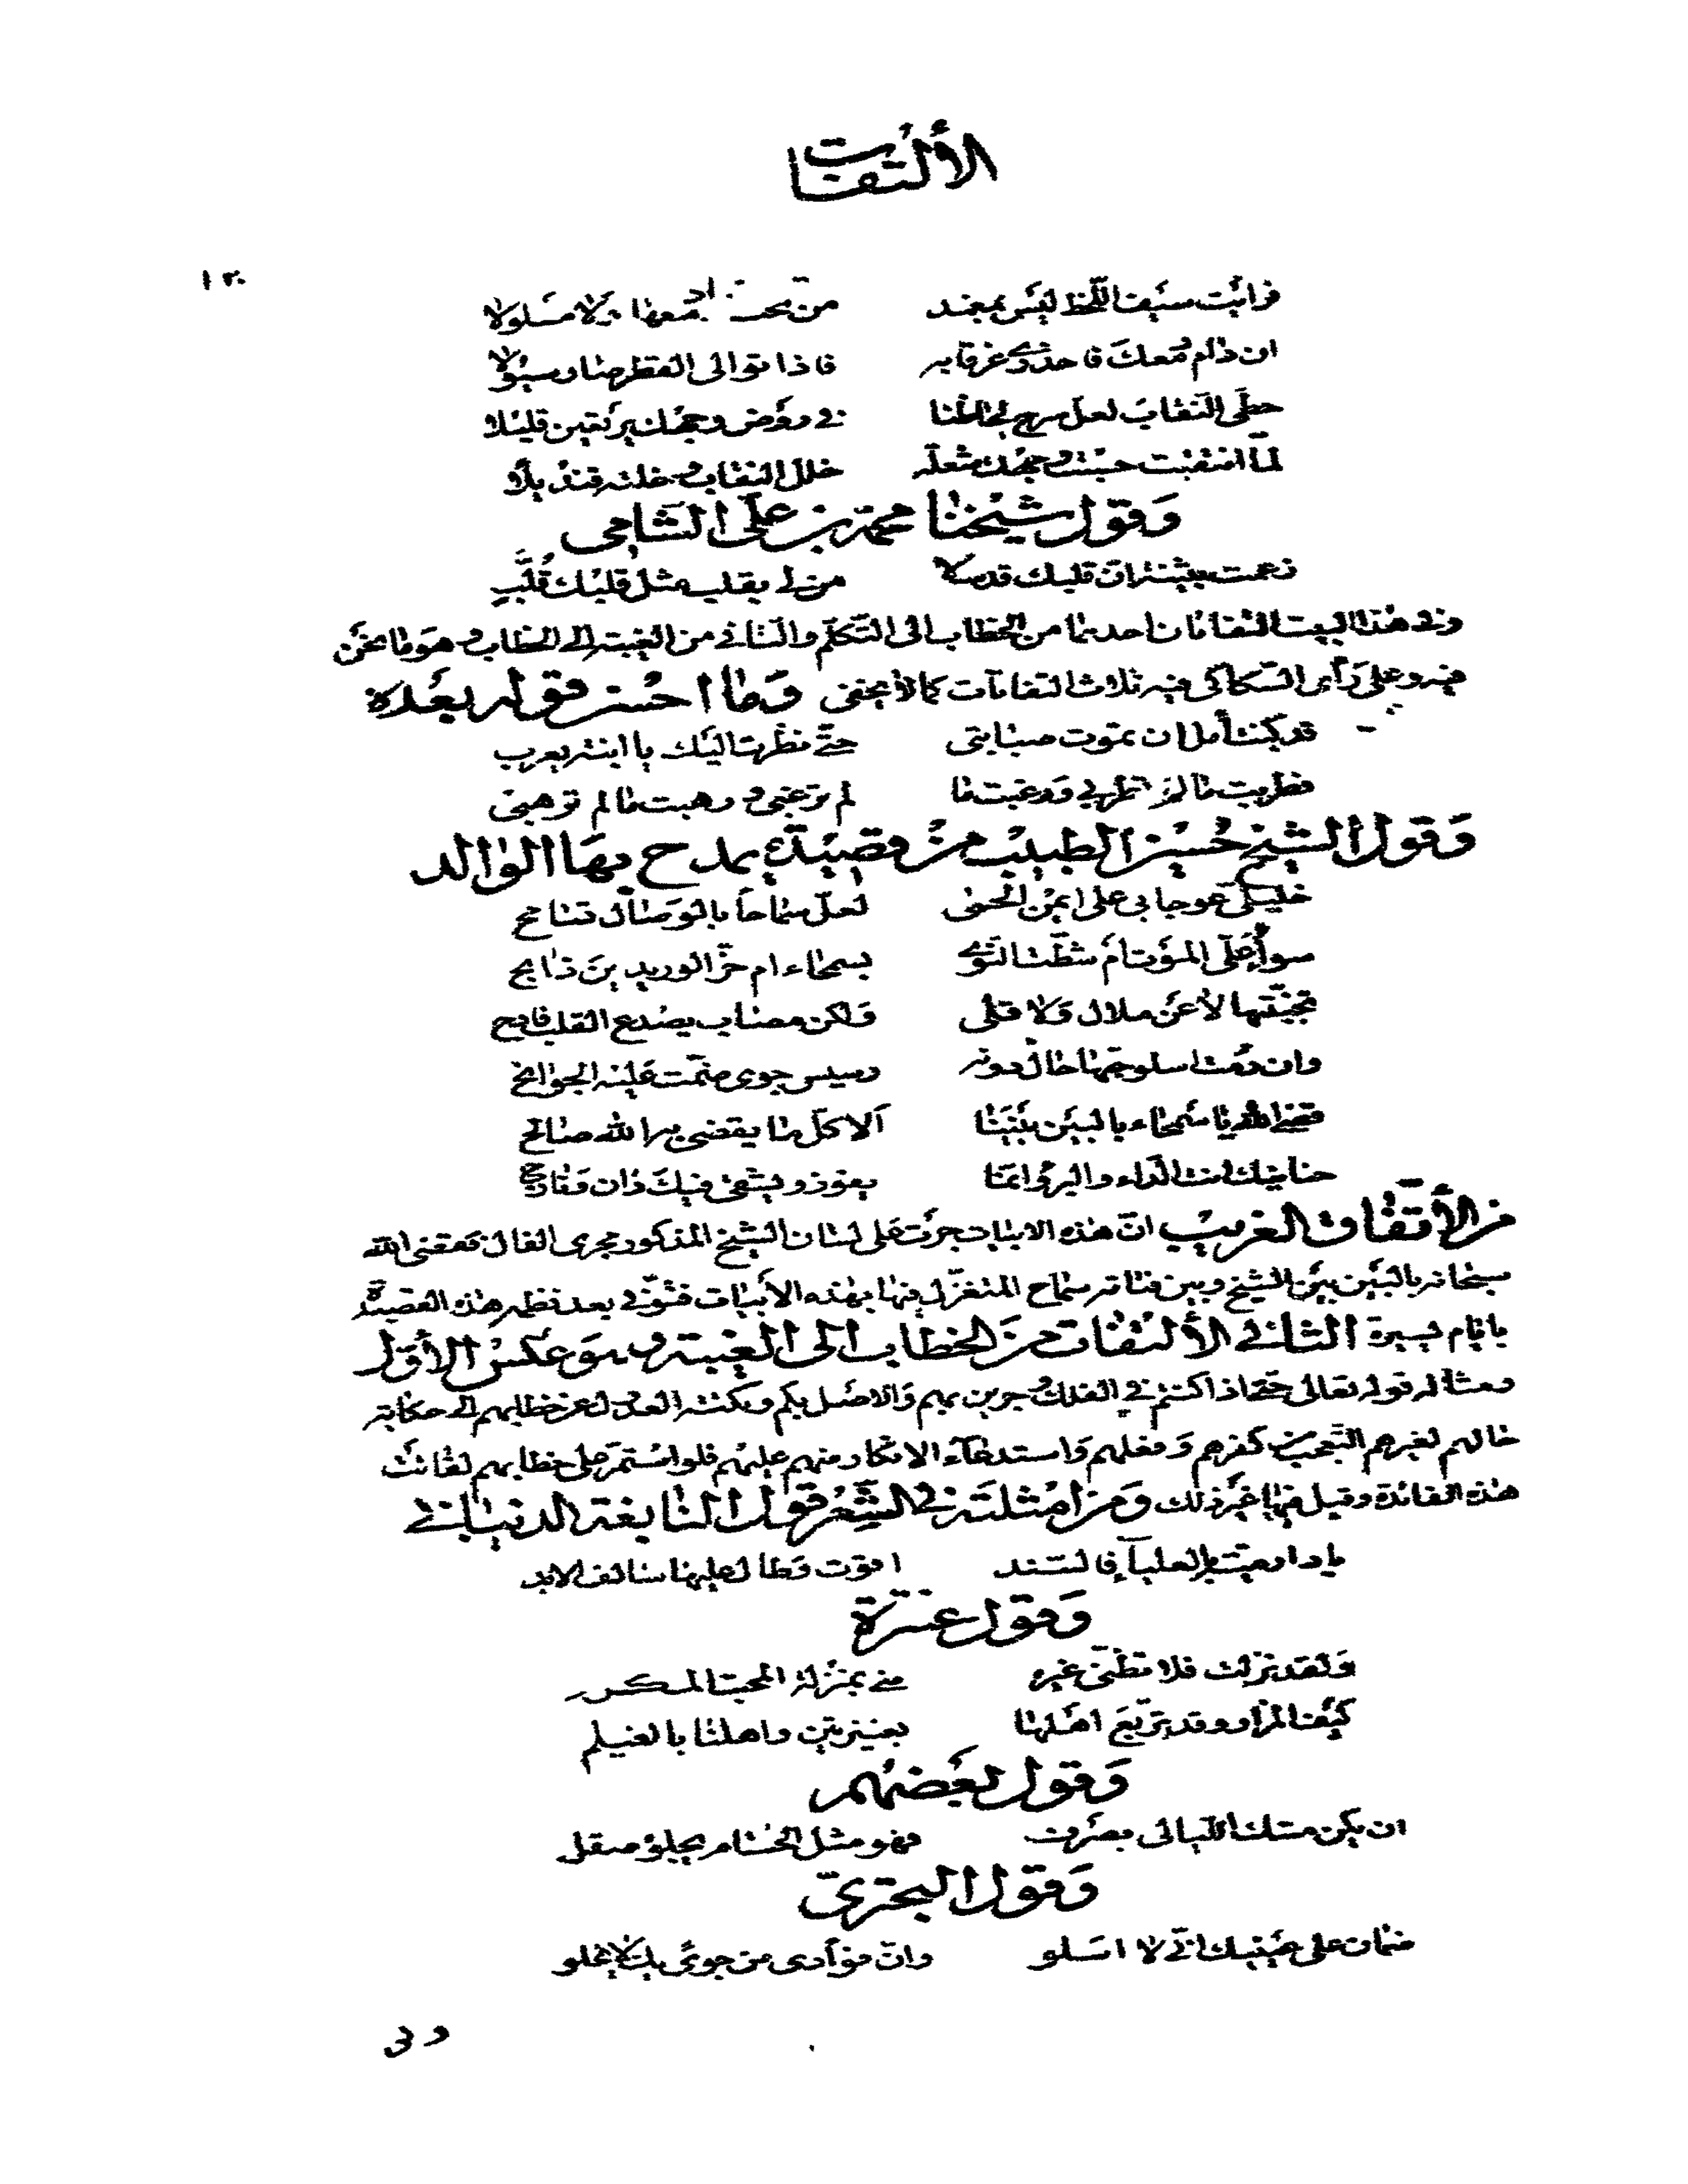 الألتفات
١٣٠
فرأيت سيف اللحظ ليس بمغمد من تحت أدمعها ولا مسلولا
ان دام دمعك فاحذري غرقا به فاذا توالى القطر صار سيولا
حطى النقاب لعل سرح لحاظنا في روض وجهك يرتعين قليلا
لما انتقبت حسبت وجهك شعلة خلل النقاب وخلته قنديلا
وقول شيخنا محمد بن علي الشامي
زعمت بثينة ان قلبك قد سلا من لي بقلب مثل قلبك قلب
وفي هذا البيت التفاتان احدهما من الخطاب الى التكلم والثاني من الغيبة الى الخطاب وهو ما نحن
فيه وعلى رأي السكاكى فيه ثلاث التفاتات كما لا يخفى وما احسن قوله بعده
قد كنت آمل ان تموت صبابتي حتى نظرت اليك يا ابنة يعرب
فطربت ما لم تطربي ورغبت ما لم ترغبي ورهبت ما لم ترهبي
وقول الشيخ حسين الطبيب من قصيدة يمدح بها الوالد
خليلى عوجا بي على ايمن الحمى لعل سماحا بالوصال تسامح
سواء على الموت ام شطت النوى بسمحاء ام حز الوريدين ذابح
تجنبتها لا عن ملال ولا قلى ولكن مصاب يصدع القلب فادح
وان رمت اسلو حبها حال دونه رسيس جوى ضمت عليه الجوانح
قضى الله يا سمحاء بالبين بيننا ألا كل ما يقضى به الله صالح
حنانيك انت الداء والبرؤ انما يعوذ ويشقى فيك دان ونازح
من الأتفاق الغريب ان هذه الابيات جرت على لسان الشيخ المذكور مجرى الفال فقضى الله
سبحانه بالبين بين الشيخ وبين فتاته سماح المتغزل فيها بهذه الأبيات فتوفى بعد نظم هذه القصيدة
بايام يسيرة الثاني الألتفات من الخطاب الى الغيبة وهو عكس الأول
ومثاله قوله تعالى حتى اذا كنتم في الفلك وجرين بهم والاصل بكم ونكتته العدول عن خطابهم الى حكاية
حالهم لغيرهم التعجب من كفرهم وفعلهم واستدعاء الانكار منهم عليهم فلو استمر على خطابهم لفاتت
هذه الفائدة وقيل فيها غير ذلك ومن امثلته في الشعر قول النابغة الذبياني
يا دار مية بالعلياء فالسند اقوت وطال عليها سالف الابد
وقول عنترة
ولقد نزلت فلا تظنى غيره منى بمنزلة المحب المكرم
كيف المزار وقد تربع اهلها بعنيزتين واهلنا بالغيلم
وقول بعضهم
ان يكن مسك الليالى بصرف فهو مثل الحسام يجلوه صقل
وقول البحتري
ضمان على عينيك انى لا اسلو وان فؤادى من جوى بك لا يخلو
وفى